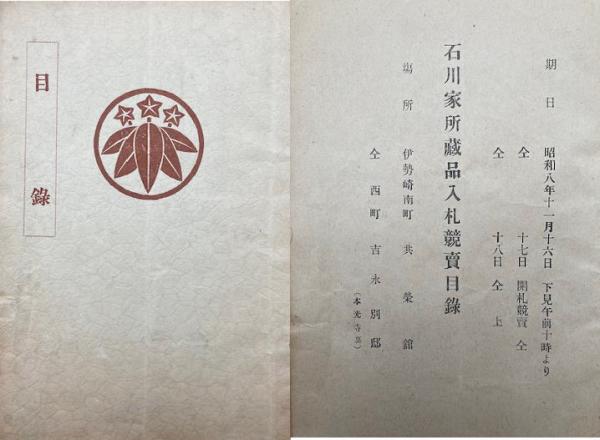 目錄
期日　昭和八年十一月十六日　下見午前十時より
仝　十七日　開札競賣　仝
仝　十八日　仝上
石川家所藏品入札競賣目錄
塲所　伊勢崎南町　共榮舘
仝　西町　吉永別邸
（本光寺裏）